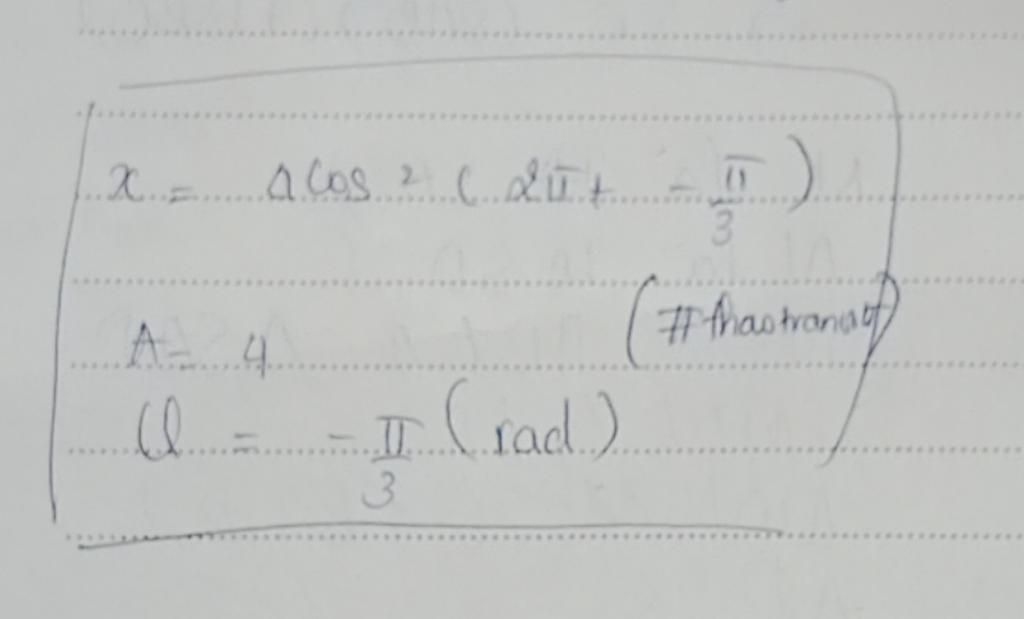 x = 4 cos 2 ( 2π t - π/3 )
(#thaotranabf)
A = 4
φ = - π/3 (rad)